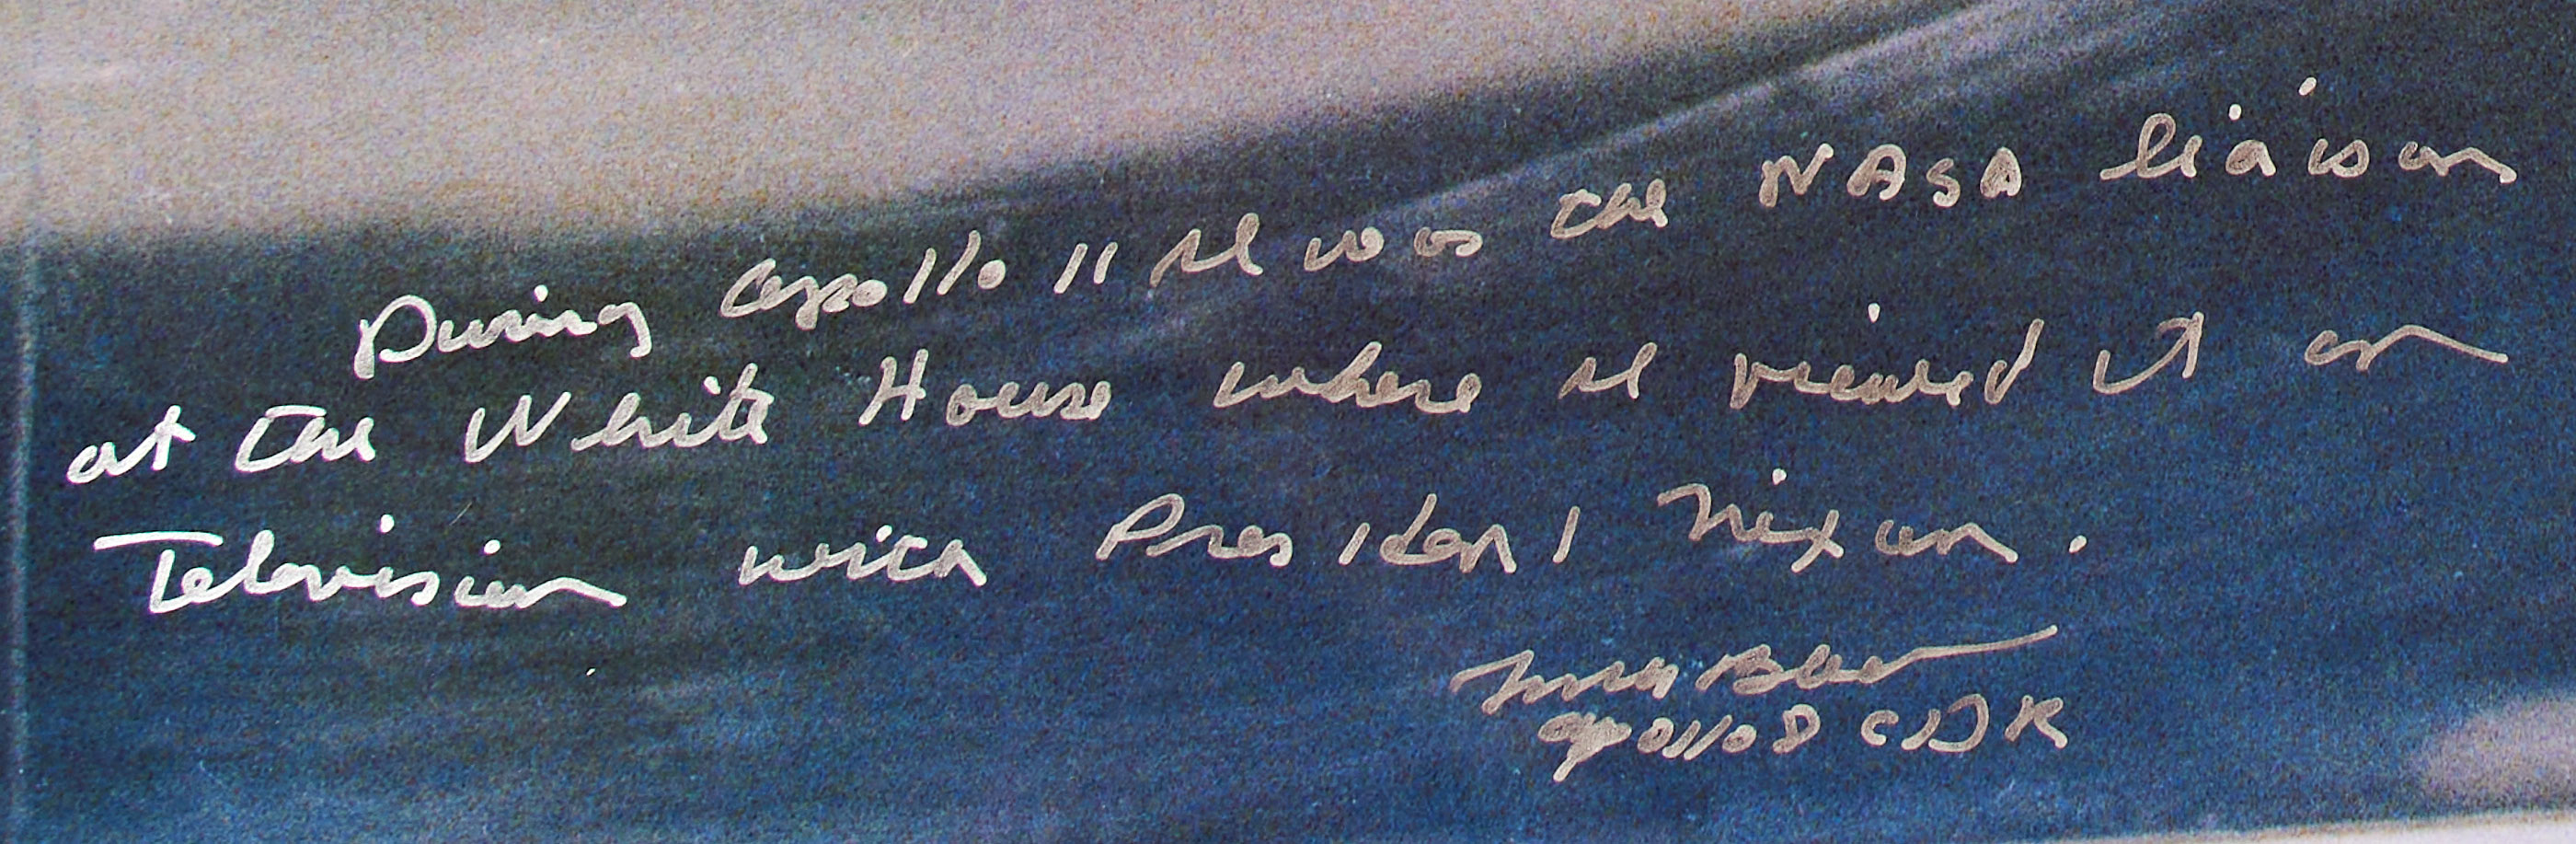 During Apollo 11 I was the NASA liaison
at the White House where I viewed it on
Television with President Nixon.
Frank Borman
Apollo 8 CDR